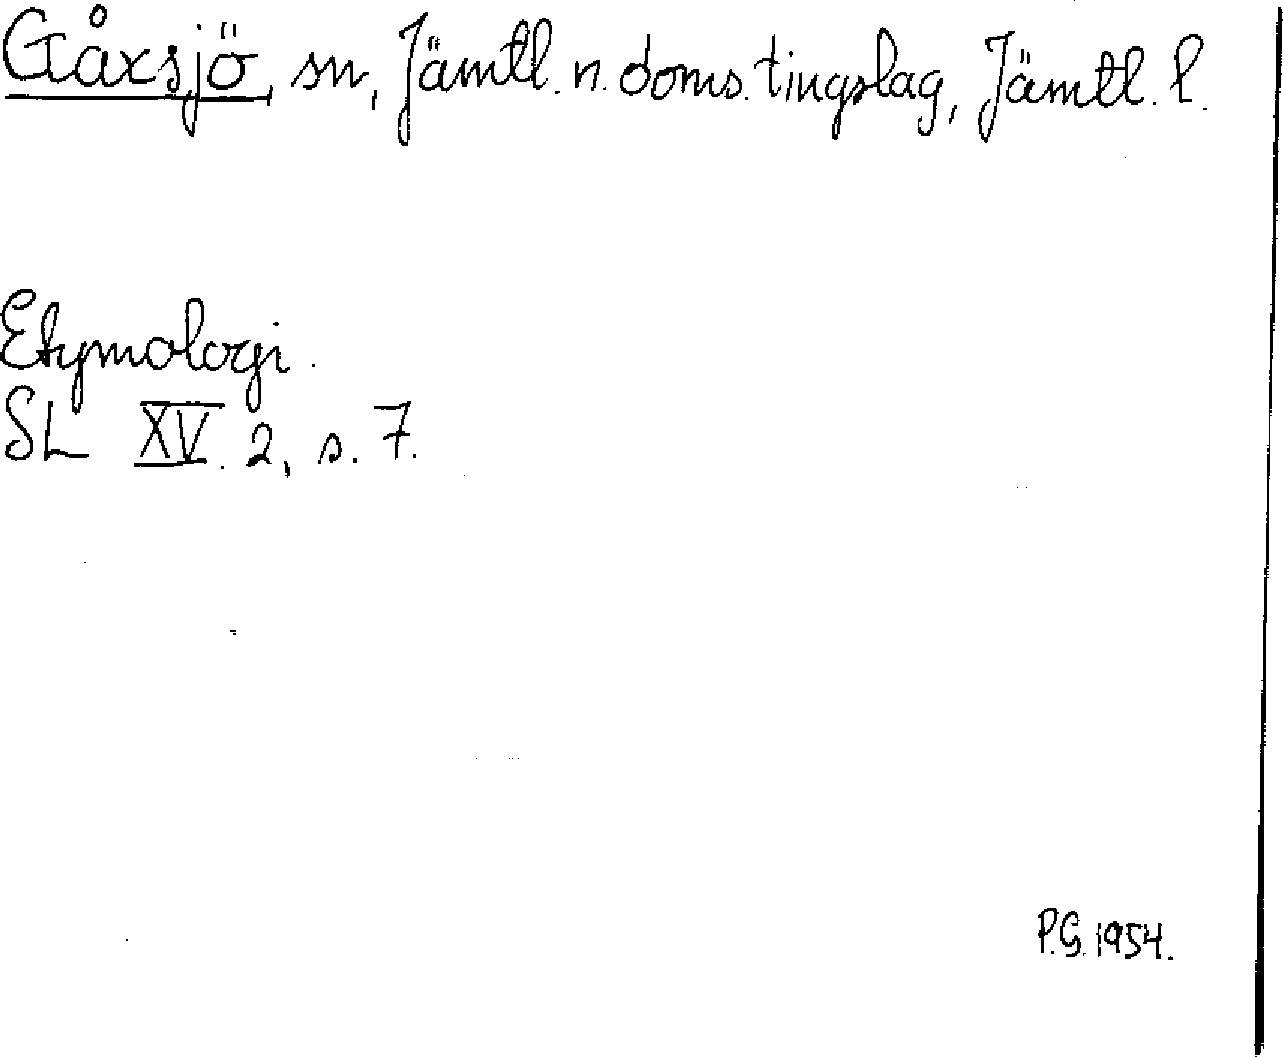 Gåxsjö, sn, Jämtl. n. doms. tingslag, Jämtl. l.
Etymologi.
SL XV. 2, s. 7.
P.G. 1954.